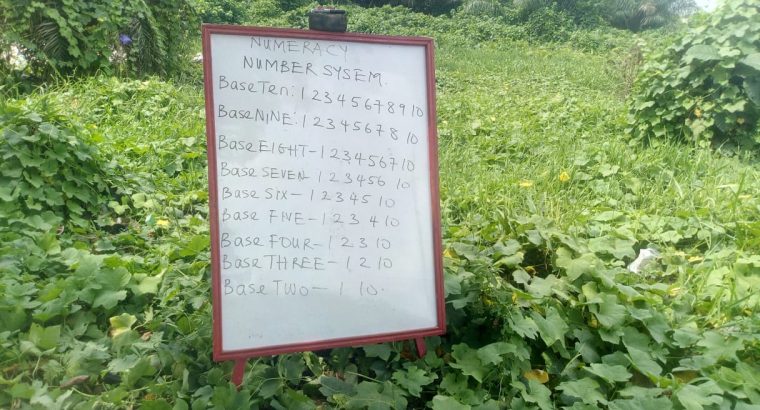 NUMERACY
NUMBER SYSEM.
Base Ten: 1 2 3 4 5 6 7 8 9 10
Base NINE: 1 2 3 4 5 6 7 8 10
Base EIGHT - 1 2 3 4 5 6 7 10
Base SEVEN - 1 2 3 4 5 6 10
Base SIX - 1 2 3 4 5 10
Base FIVE - 1 2 3 4 10
Base FOUR - 1 2 3 10
Base THREE - 1 2 10
Base TWO - 1 10.